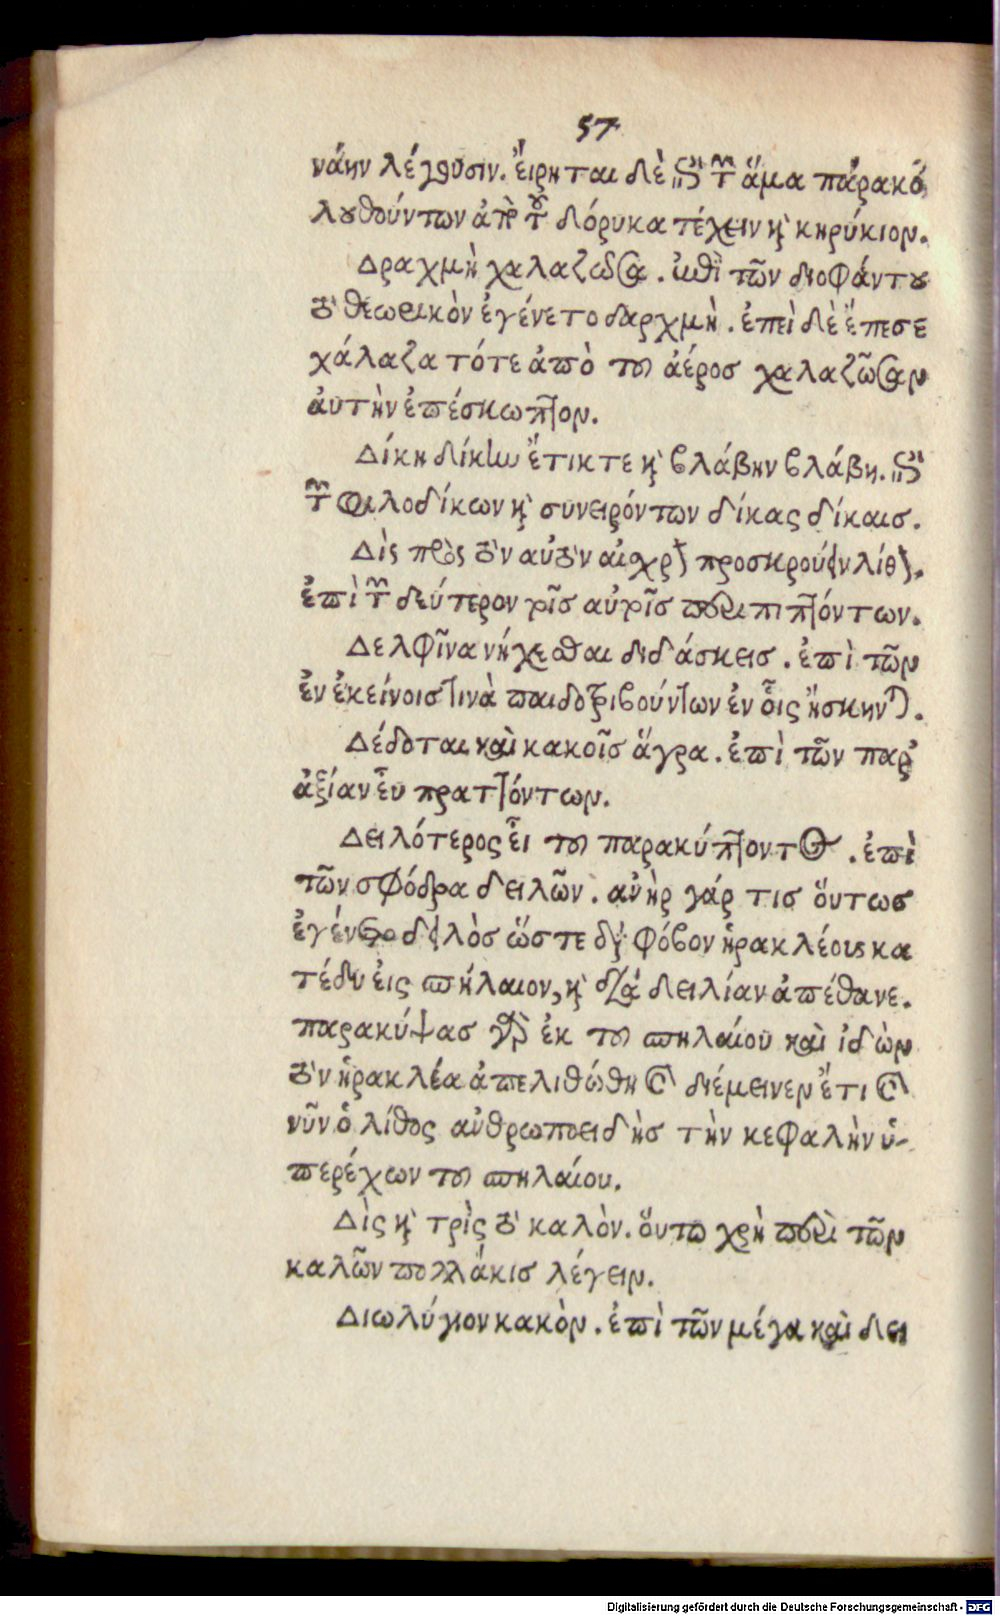 57
νάην λέγουσιν. ἔιρηται δὲ ἐπὶ τῶν ἅμα παρακο
λουθούντων ἀπὸ τοῦ δόρυκα τέχειν καὶ κηρύκιον.
Δραχμὴ χαλαζῶσα. ἐπὶ τῶν διοφάντου
τὸ θεωρικὸν ἐγένετο δαρχμὴ. ἐπεὶ δὲ ἔπεσε
χάλαζα τότε ἀπὸ του ἀέροσ χαλαζῶσαν
ἀυτὴν ἐπέσκωπτον.
Δίκη δίκην ἔτικτε καὶ βλάβην βλάβη. ἐπὶ
τῶν φιλοδίκων καὶ συνειρόντων δίκας δίκαισ.
Δὶς πρὸς τὸν αὐτὸν αἰσχρὸν προσκρούειν λίθον.
ἐπὶ τῶν δεύτερον τοῖσ αὐτοῖσ περιπιπτόντων.
Δελφῖνα νήχεσθαι διδάσκεισ. ἐπὶ τῶν
ἐν ἐκείνοισ τινὰ παιδοτριβούντων ἐν οἷς ἤσκηνται.
Δέδοται καὶ κακοῖσ ἄγρα. ἐπὶ τῶν παρ
ἀξίαν εὖ πραττόντων.
Δειλότερος εἶ του παρακύπτοντος. ἐπὶ
τῶν σφόδρα δειλῶν. ἀνὴρ γάρ τισ ὅυτωσ
ἐγένετο δειλὸσ ὥστε διὰ φόβον ἡρακλέους κα
τέδυ εἰς σπήλαιον, καὶ διὰ δειλίαν ἀπέθανε.
παρακύψασ γὰρ ἐκ του σπηλαίου καὶ ἰδὼν
τὸν ἡρακλέα ἀπελιθώθη καὶ διέμεινεν ἔτι καὶ
νῦν ὁ λίθος ἀνθρωποειδὴσ τὴν κεφαλὴν ὑ-
περέχων του σπηλαίου.
Δὶς καὶ τρὶς τὸ καλὸν. ὅυτω χρὴ περὶ τῶν
καλῶν πολλάκισ λέγειν.
Διωλύγιον κακὸν. ἐπὶ τῶν μέγα καὶ δει
Digitalisierung gefördert durch die Deutsche Forschungsgemeinschaft - DFG